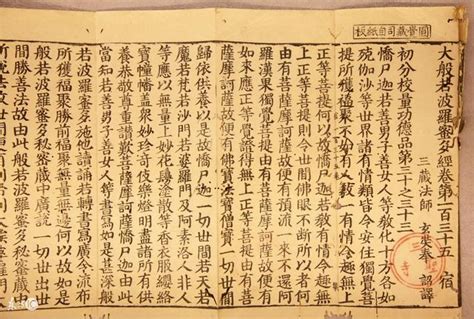 圓覺藏司自紙板
大般若波羅蜜多經卷第一百三十五 宿
三藏法師玄奘奉 詔譯
初分校量功德品第三十之三十三
憍尸迦若善男子善女人等教化十方各如
殑伽沙等世界諸有情類皆令安住獨覺菩
提所獲福聚不如有人教一有情令趣無上
正等菩提何以故憍尸迦若教有情令趣無
上正等菩提則令世間佛眼不斷所以者何
由有菩薩摩訶薩故便有預流一來不還阿
羅漢果獨覺菩提由有菩薩摩訶薩故便有
如來應正等覺證得無上正等菩提由有菩
薩摩訶薩故便有佛寶法寶僧寶一切世間
歸依供養以是故憍尸迦一切世間若天若
魔若梵若沙門若婆羅門及阿素洛人非人
等應以無量上妙花鬘塗散等香衣服瓔珞
寶幢幡蓋眾妙珍奇伎樂燈明盡諸所有供
養恭敬尊重讚歎菩薩摩訶薩憍尸迦由此
當知若善男子善女人等書寫如是甚深般
若波羅蜜多施他讀誦若轉書寫廣令流布
所獲福聚勝前福聚無量無邊何以故如是
般若波羅蜜多祕密藏中廣說一切世出世
間勝善法故由此般若波羅蜜多祕密藏中
所說法故世間便有